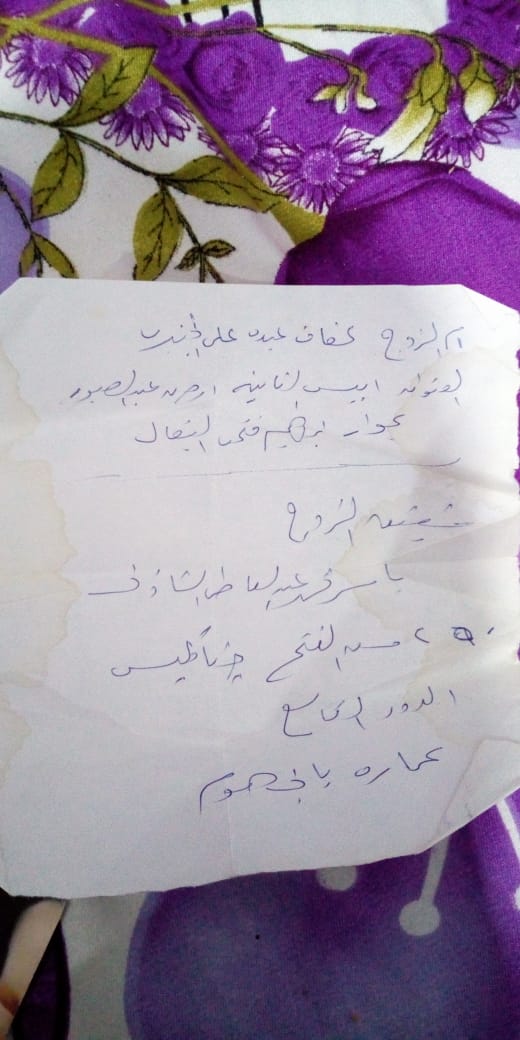 ام الزوج عفاف عبده على الجندى
العنوان ابيس الثانيه ارض عبد الصبور
بجوار ابراهيم فتحى البقال
شقيقه الزوج
ياسر عبد العاطى الشاذلى
حسن الفتح جناكليس
الدور السابع
عماره